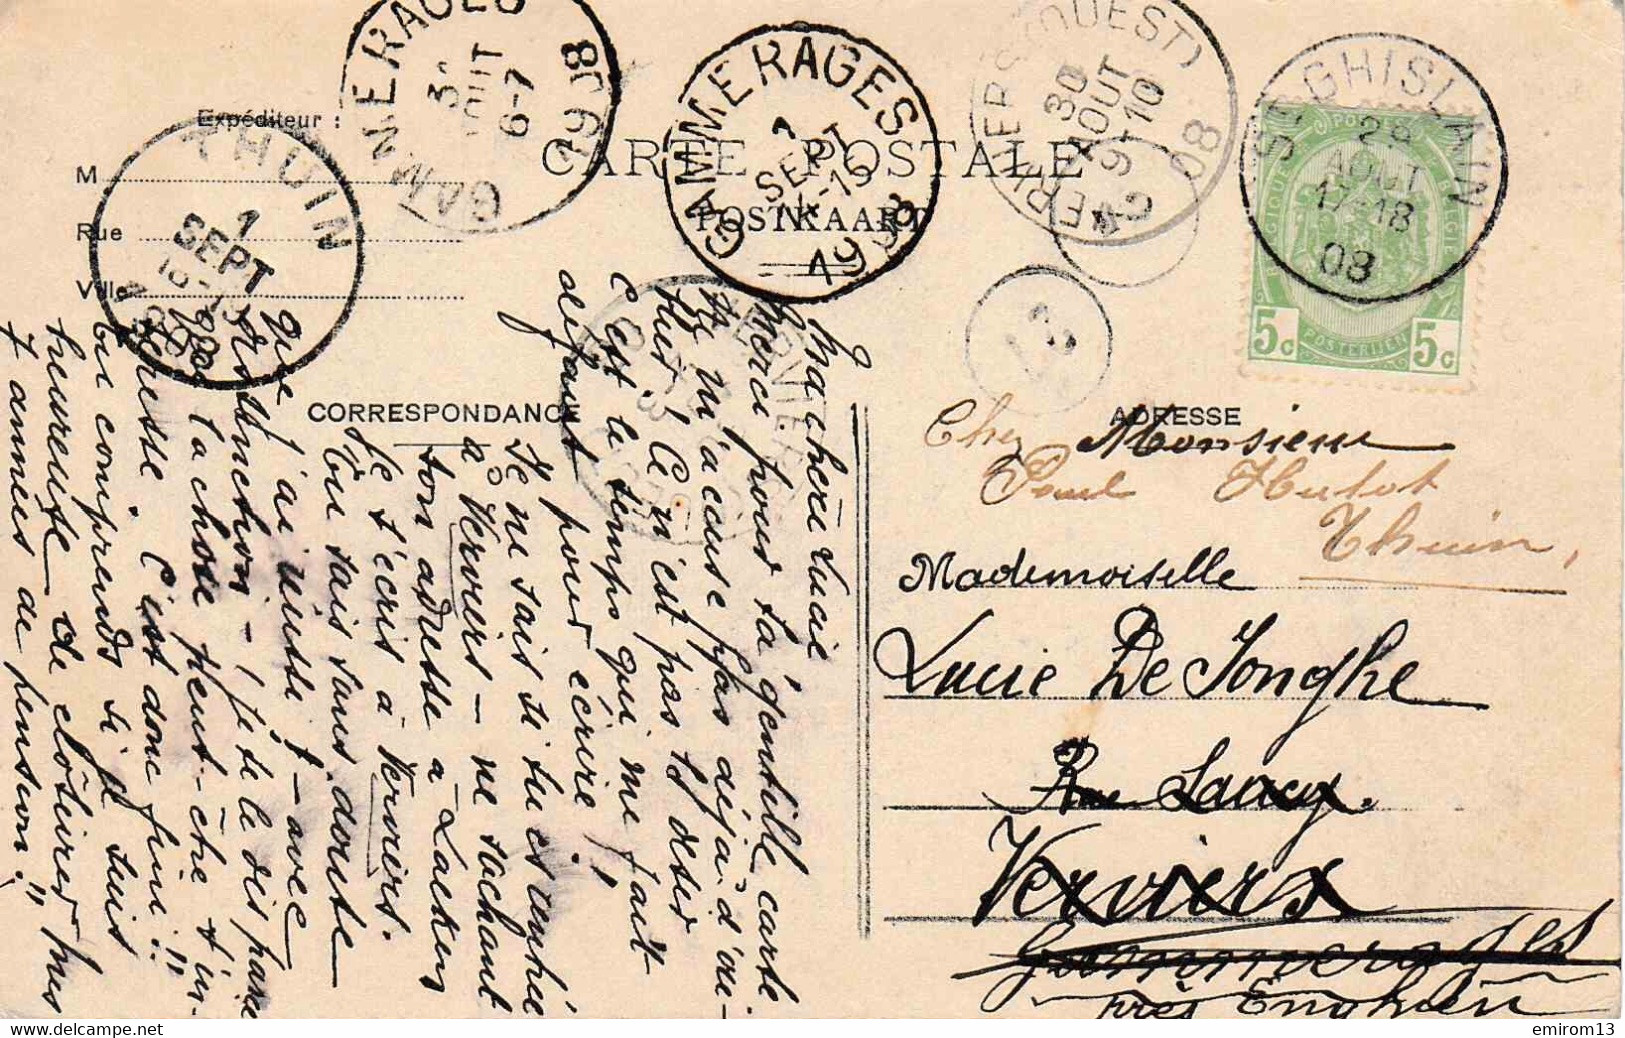 Expéditeur :
M
Rue
Ville
CARTE POSTALE
POSTKAART
CORRESPONDANCE
ADRESSE
GAMMERAGES
AOUT
6-7
1908
GAMMERAGES
1
SEPT
14-15
1908
VERVIERS (OUEST)
30
AOUT
9-10
08
ST GHISLAIN
29
AOUT
17-18
08
THUIN
1
SEPT
18-19
1908
POSTES
BELGIQUE BELGIE
POSTERIJEN
5c 5c
Ma chère Lucie
Merci pour ta gentille carte
Ne m'accuse pas déjà d'ou-
bli! Ce n'est pas le désir
C'est le temps qui me fait
défaut pour écrire!
Je ne sais si tu es rentrée
à Verviers - ne sachant
ton adresse à Laeken
Je t'écris à Verviers.
Tu sais sans doute
que j'ai réussi! - avec
distinction - je te le dis parce
que la chose peut-être t'in-
téresse. C'est donc fini!!
tu comprends si je suis
heureuse de clôturer mes
7 années de pension!!
Chez Monsieur
Paul Hulot
Thuin,
Mademoiselle
Lucie De Jonghe
Rue
Verviers
Gammerages
près Enghien
emirom13